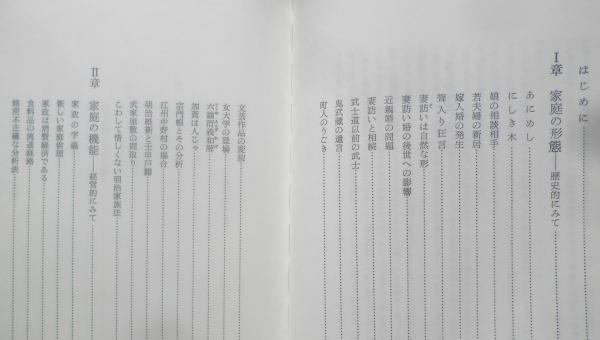 はじめに
Ⅰ章 家庭の形態――歴史的にみて
あにめし
にしき木
娘の相談相手
若夫婦の新居
嫁入婚の発生
聟入り狂言
妻訪いは自然な形
妻訪い婚の後世への影響
近親婚の問題
妻訪いと相続
武士道以前の武士
鬼武蔵の遺言
町人のうごき
文芸作品の変貌
女大学の登場
六諭衍義和解
加賀は人じゃ
宗門帳とその分析
江州中野村の場合
明治維新と壬申戸籍
武家屋敷の間取り
こわして惜しくない明治家族法
Ⅱ章 家庭の機能――経営的にみて
家政の字義
新しい家庭倫理
家政は消費経済である
食料品の流通経路
精密不正確な分析表